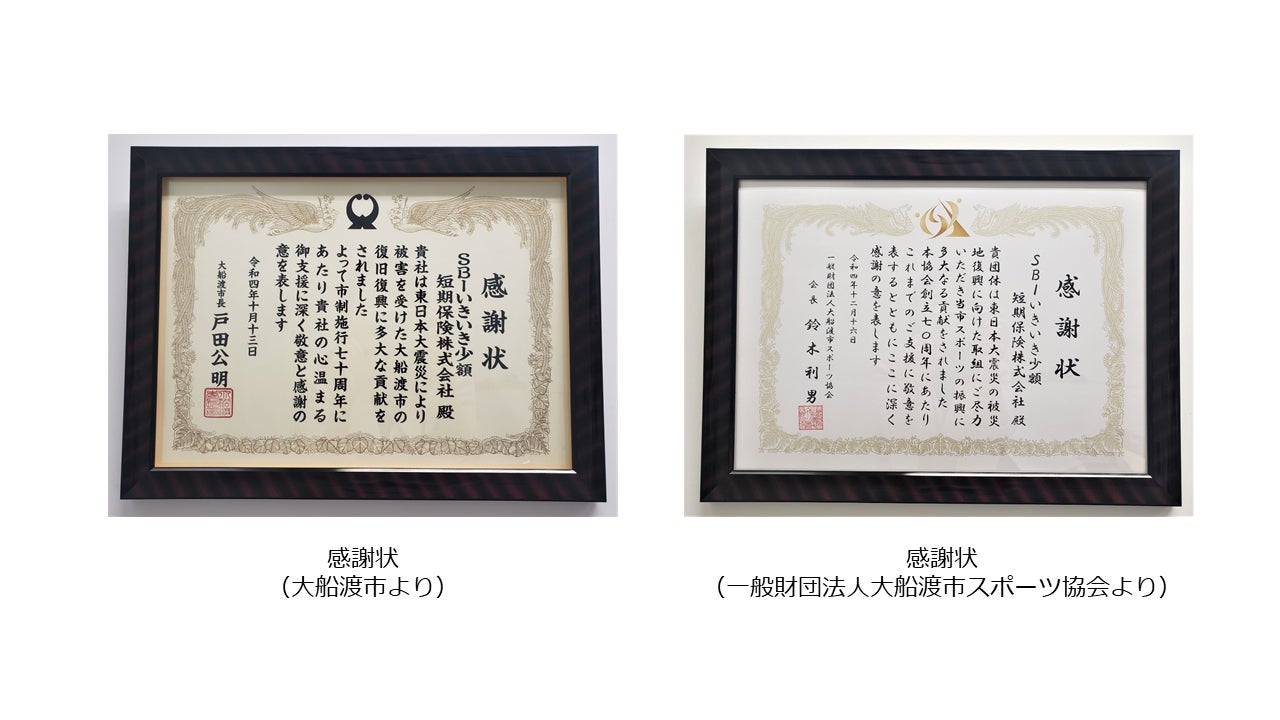 感謝状
SBIいきいき少額
短期保険株式会社 殿
貴社は東日本大震災により
被害を受けた大船渡市の
復旧復興に多大な貢献を
されました
よって市制施行七十周年に
あたり貴社の心温まる
御支援に深く敬意と感謝の
意を表します
令和四年十月十三日
大船渡市長 戸田公明
感謝状
(大船渡市より)
感謝状
SBIいきいき少額
短期保険株式会社 殿
貴団体は東日本大震災の被災
地復興に向けた取組にご尽力
いただき当市スポーツの振興に
多大なる貢献をされました
本協会創立七〇周年にあたり
これまでのご支援に敬意を
表するとともにここに深く
感謝の意を表します
令和四年十二月十六日
一般財団法人大船渡市スポーツ協会
会長 鈴木利男
感謝状
(一般財団法人大船渡市スポーツ協会より)